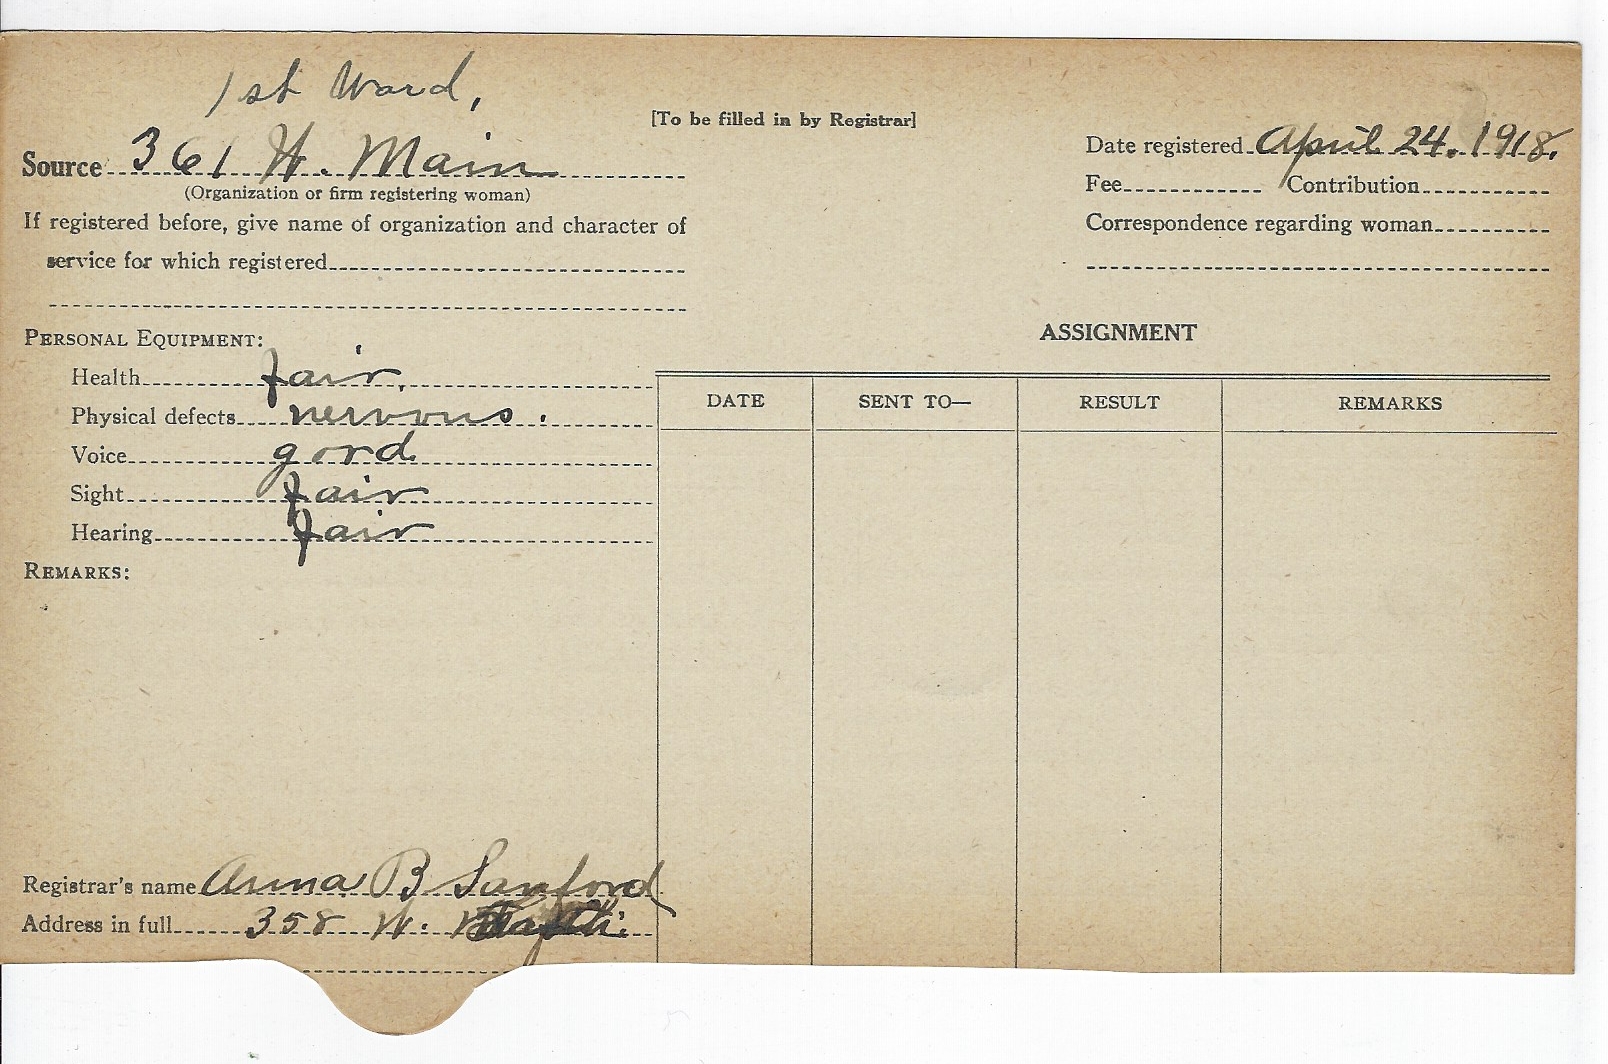 1st Ward,
[To be filled in by Registrar]
Source 361 W. Main
(Organization or firm registering woman)
Date registered April 24. 1918.
Fee Contribution
If registered before, give name of organization and character of
service for which registered
Correspondence regarding woman
PERSONAL EQUIPMENT:
ASSIGNMENT
Health fair.
Physical defects nervous.
Voice good
Sight fair
Hearing fair
DATE SENT TO— RESULT REMARKS
REMARKS:
Registrar's name Anna B Sanford
Address in full 358 W.